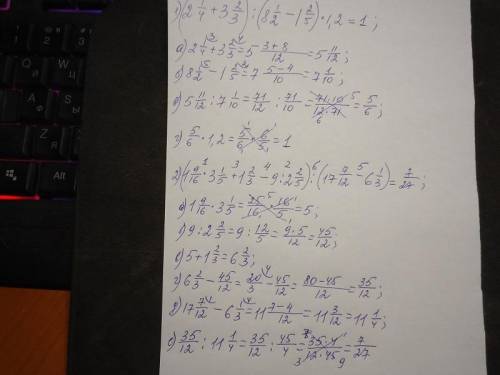 1) (2 1/4 + 3 2/3) : (8 1/2 − 1 2/5) * 1,2 = 1 ;
а) 2 1/4 + 3 2/3 = 5 (3+8)/12 = 5 11/12 ;
б) 8 1/2 − 1 2/5 = 7 (5−4)/10 = 7 1/10 ;
в) 5 11/12 : 7 1/10 = 71/12 : 71/10 = 71·10/12·71 = 5/6 ;
г) 5/6 * 1,2 = 5/6 * 6/5 = 1
2) (1 9/16 * 3 1/5 + 1 2/3 − 9 : 2 2/5) : (17 7/12 − 6 1/3) = 7/27 ;
а) 1 9/16 * 3 1/5 = 25/16 * 16/5 = 5 ;
б) 9 : 2 2/5 = 9 : 12/5 = 9·5/12 = 45/12 ;
в) 5 + 1 2/3 = 6 2/3 ;
г) 6 2/3 − 45/12 = 20/3 − 45/12 = (80−45)/12 = 35/12 ;
д) 17 7/12 − 6 1/3 = 11 (7−4)/12 = 11 3/12 = 11 1/4 ;
е) 35/12 : 11 1/4 = 35/12 : 45/4 = 35·4/12·45 = 7/27